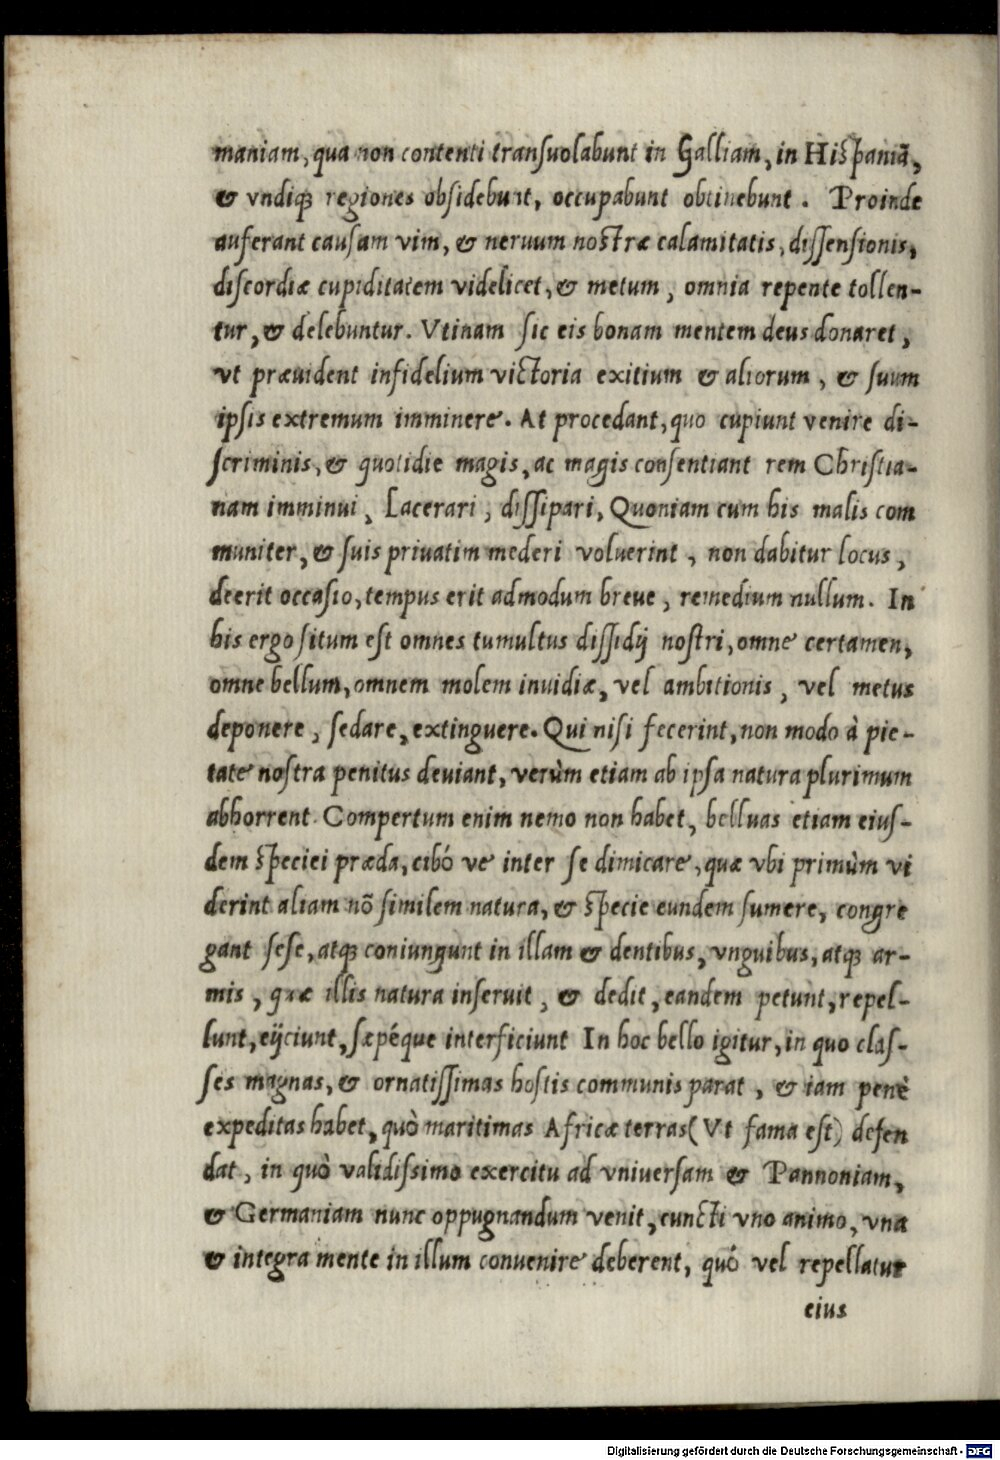 maniam, qua non contenti transuolabunt in Galliam, in Hispaniã,
& vndiqꝫ regiones obsidebunt, occupabunt obtinebunt. Proinde
auferant causam vim, & neruum nostræ calamitatis, dissensionis,
discordiæ cupiditatem videlicet, & metum, omnia repente tollen-
tur, & delebuntur. Vtinam sic eis bonam mentem deus donaret,
vt præuident infidelium victoria exitium & aliorum, & suum
ipsis extremum imminere. At procedant, quo cupiunt venire di-
scriminis, & quotidie magis, ac magis consentiant rem Christia-
nam imminui, Lacerari, dissipari, Quoniam cum his malis com
muniter, & suis priuatim mederi voluerint, non dabitur locus,
deerit occasio, tempus erit admodum breue, remedium nullum. In
his ergo situm est omnes tumultus dissidij nostri, omne certamen,
omne bellum, omnem molem inuidiæ, vel ambitionis, vel metus
deponere, sedare, extinguere. Qui nisi fecerint, non modo à pie-
tate nostra penitus deuiant, verùm etiam ab ipsa natura plurimum
abhorrent. Compertum enim nemo non habet, belluas etiam eius-
dem speciei præda, cibó ve inter se dimicare, quæ vbi primùm vi
derint aliam nõ similem natura, & specie eundem sumere, congre
gant sese, atqꝫ coniungunt in illam & dentibus, vnguibus, atqꝫ ar-
mis, quæ illis natura inseruit, & dedit, eandem petunt, repel-
lunt, eijciunt, sæpéque interficiunt In hoc bello igitur, in quo clas-
ses magnas, & ornatissimas hostis communis parat, & iam penè
expeditas habet, quò maritimas Africæ terras (Vt fama est) defen
dat, in quò validissimo exercitu ad vniuersam & Pannoniam,
& Germaniam nunc oppugnandum venit, cuncti vno animo, vna
& integra mente in illum conuenire deberent, quó vel repellatur
eius
Digitalisierung gefördert durch die Deutsche Forschungsgemeinschaft - DFG